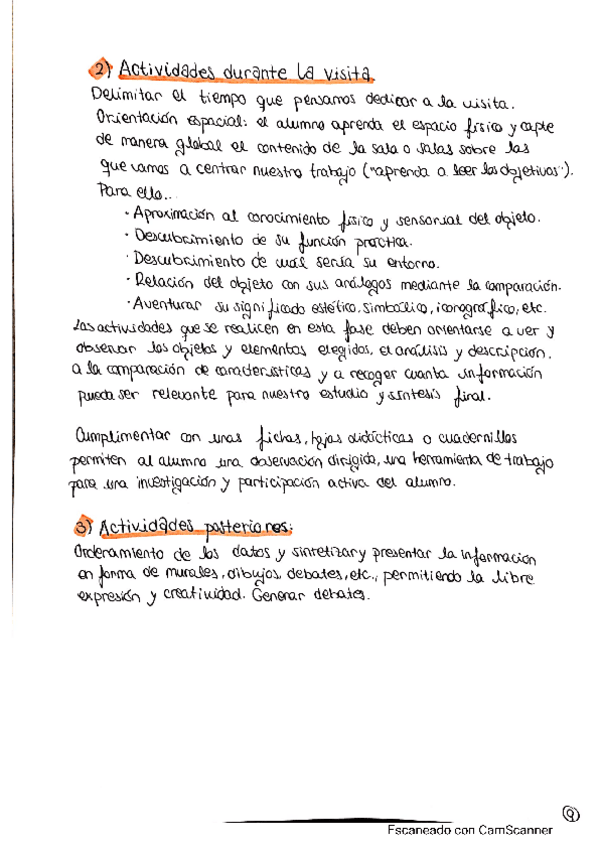 2) Actividades durante la visita
Delimitar el tiempo que pensamos dedicar a la visita.
Orientación espacial: el alumno aprenda el espacio físico y capte
de manera global el contenido de la sala o salas sobre las
que vamos a centrar nuestro trabajo ("aprenda a leer los objetivos").
Para ello...
· Aproximación al conocimiento físico y sensorial del objeto.
· Descubrimiento de su función practica.
· Descubrimiento de cuál sería su entorno.
· Relación del objeto con sus análogos mediante la comparación.
· Aventurar su significado estético, simbólico, iconográfico, etc.
Las actividades que se realicen en esta fase deben orientarse a ver y
observar los objetos y elementos elegidos, el análisis y descripción,
a la comparación de características y a recoger cuanta información
pueda ser relevante para nuestro estudio y síntesis final.
Cumplimentar con unas fichas, hojas didácticas o cuadernillos
permiten al alumno una observación dirigida, una herramienta de trabajo
para una investigación y participación activa del alumno.
3) Actividades posteriores:
Ordenamiento de los datos y sintetizar y presentar la información
en forma de murales, dibujos, debates, etc., permitiendo la libre
expresión y creatividad. Generar debates.
9
Escaneado con CamScanner